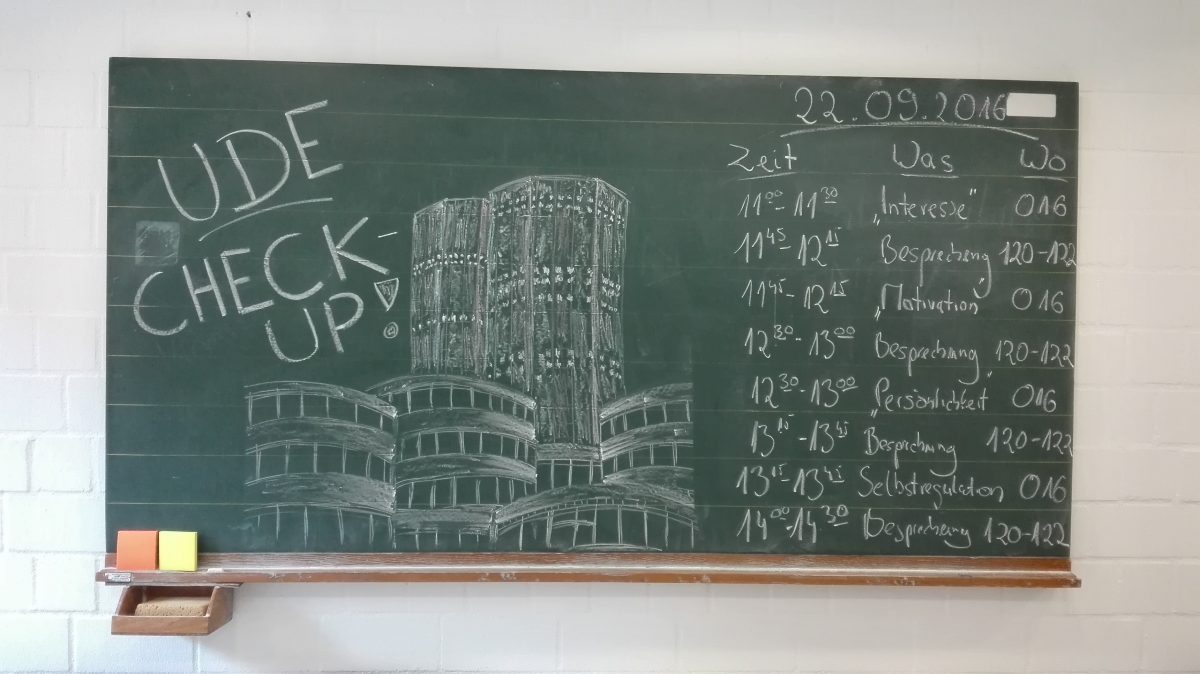 UDE
CHECK-
UP!
22.09.2016
Zeit Was Wo
11⁰⁰-11³⁰ „Interesse" 016
11⁴⁵-12¹⁵ Besprechung 120-122
11⁴⁵-12¹⁵ „Motivation" 016
12³⁰-13⁰⁰ Besprechung 120-122
12³⁰-13⁰⁰ „Persönlichkeit" 016
13¹⁵-13⁴⁵ Besprechung 120-122
13¹⁵-13⁴⁵ Selbstregulation 016
14⁰⁰-14³⁰ Besprechung 120-122